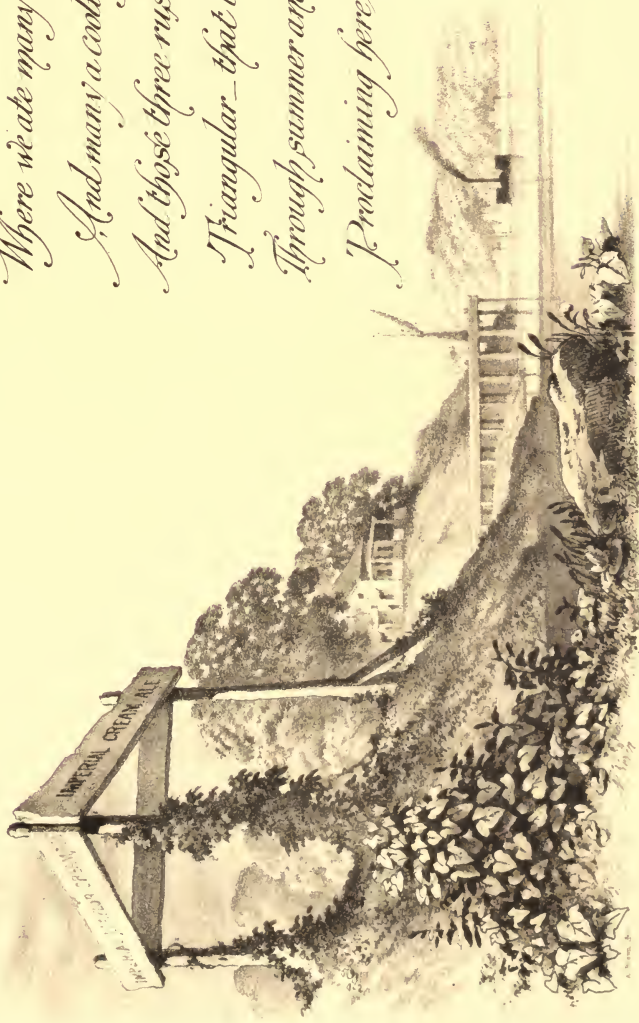 Where we ate many
And many a cool
And those three rus
Triangular—that
Through summer an
Proclaiming here
IMPERIAL CREAM ALE
IMPERIAL CREAM